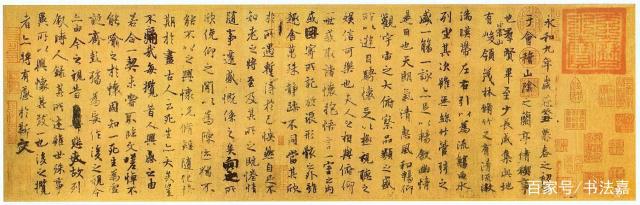 永和九年歲在癸丑暮春之初會
于會稽山陰之蘭亭脩稧事
也羣賢畢至少長咸集此地
有崇山峻領茂林脩竹又有清流激
湍暎帶左右引以為流觴曲水
列坐其次雖無絲竹管弦之
盛一觴一詠亦足以暢敘幽情
是日也天朗氣清惠風和暢仰
觀宇宙之大俯察品類之盛
所以遊目騁懷足以極視聽之
娛信可樂也夫人之相與俯仰
一世或取諸懷抱悟言一室之內
或因寄所託放浪形骸之外雖
趣舍萬殊靜躁不同當其欣
於所遇蹔得於己怏然自足不
知老之將至及其所之既惓情
隨事遷感慨係之矣向之所
欣俛仰之閒以為陳迹猶不
能不以之興懷況脩短隨化終
期於盡古人云死生亦大矣豈
不痛哉每攬昔人興感之由
若合一契未嘗不臨文嗟悼不
能喻之於懷固知一死生為虛
誕齊彭殤為妄作後之視今
亦由今之視昔悲夫故列
敘時人錄其所述雖世殊事
異所以興懷其致一也後之攬
者亦將有感於斯文
百家号/书法嘉